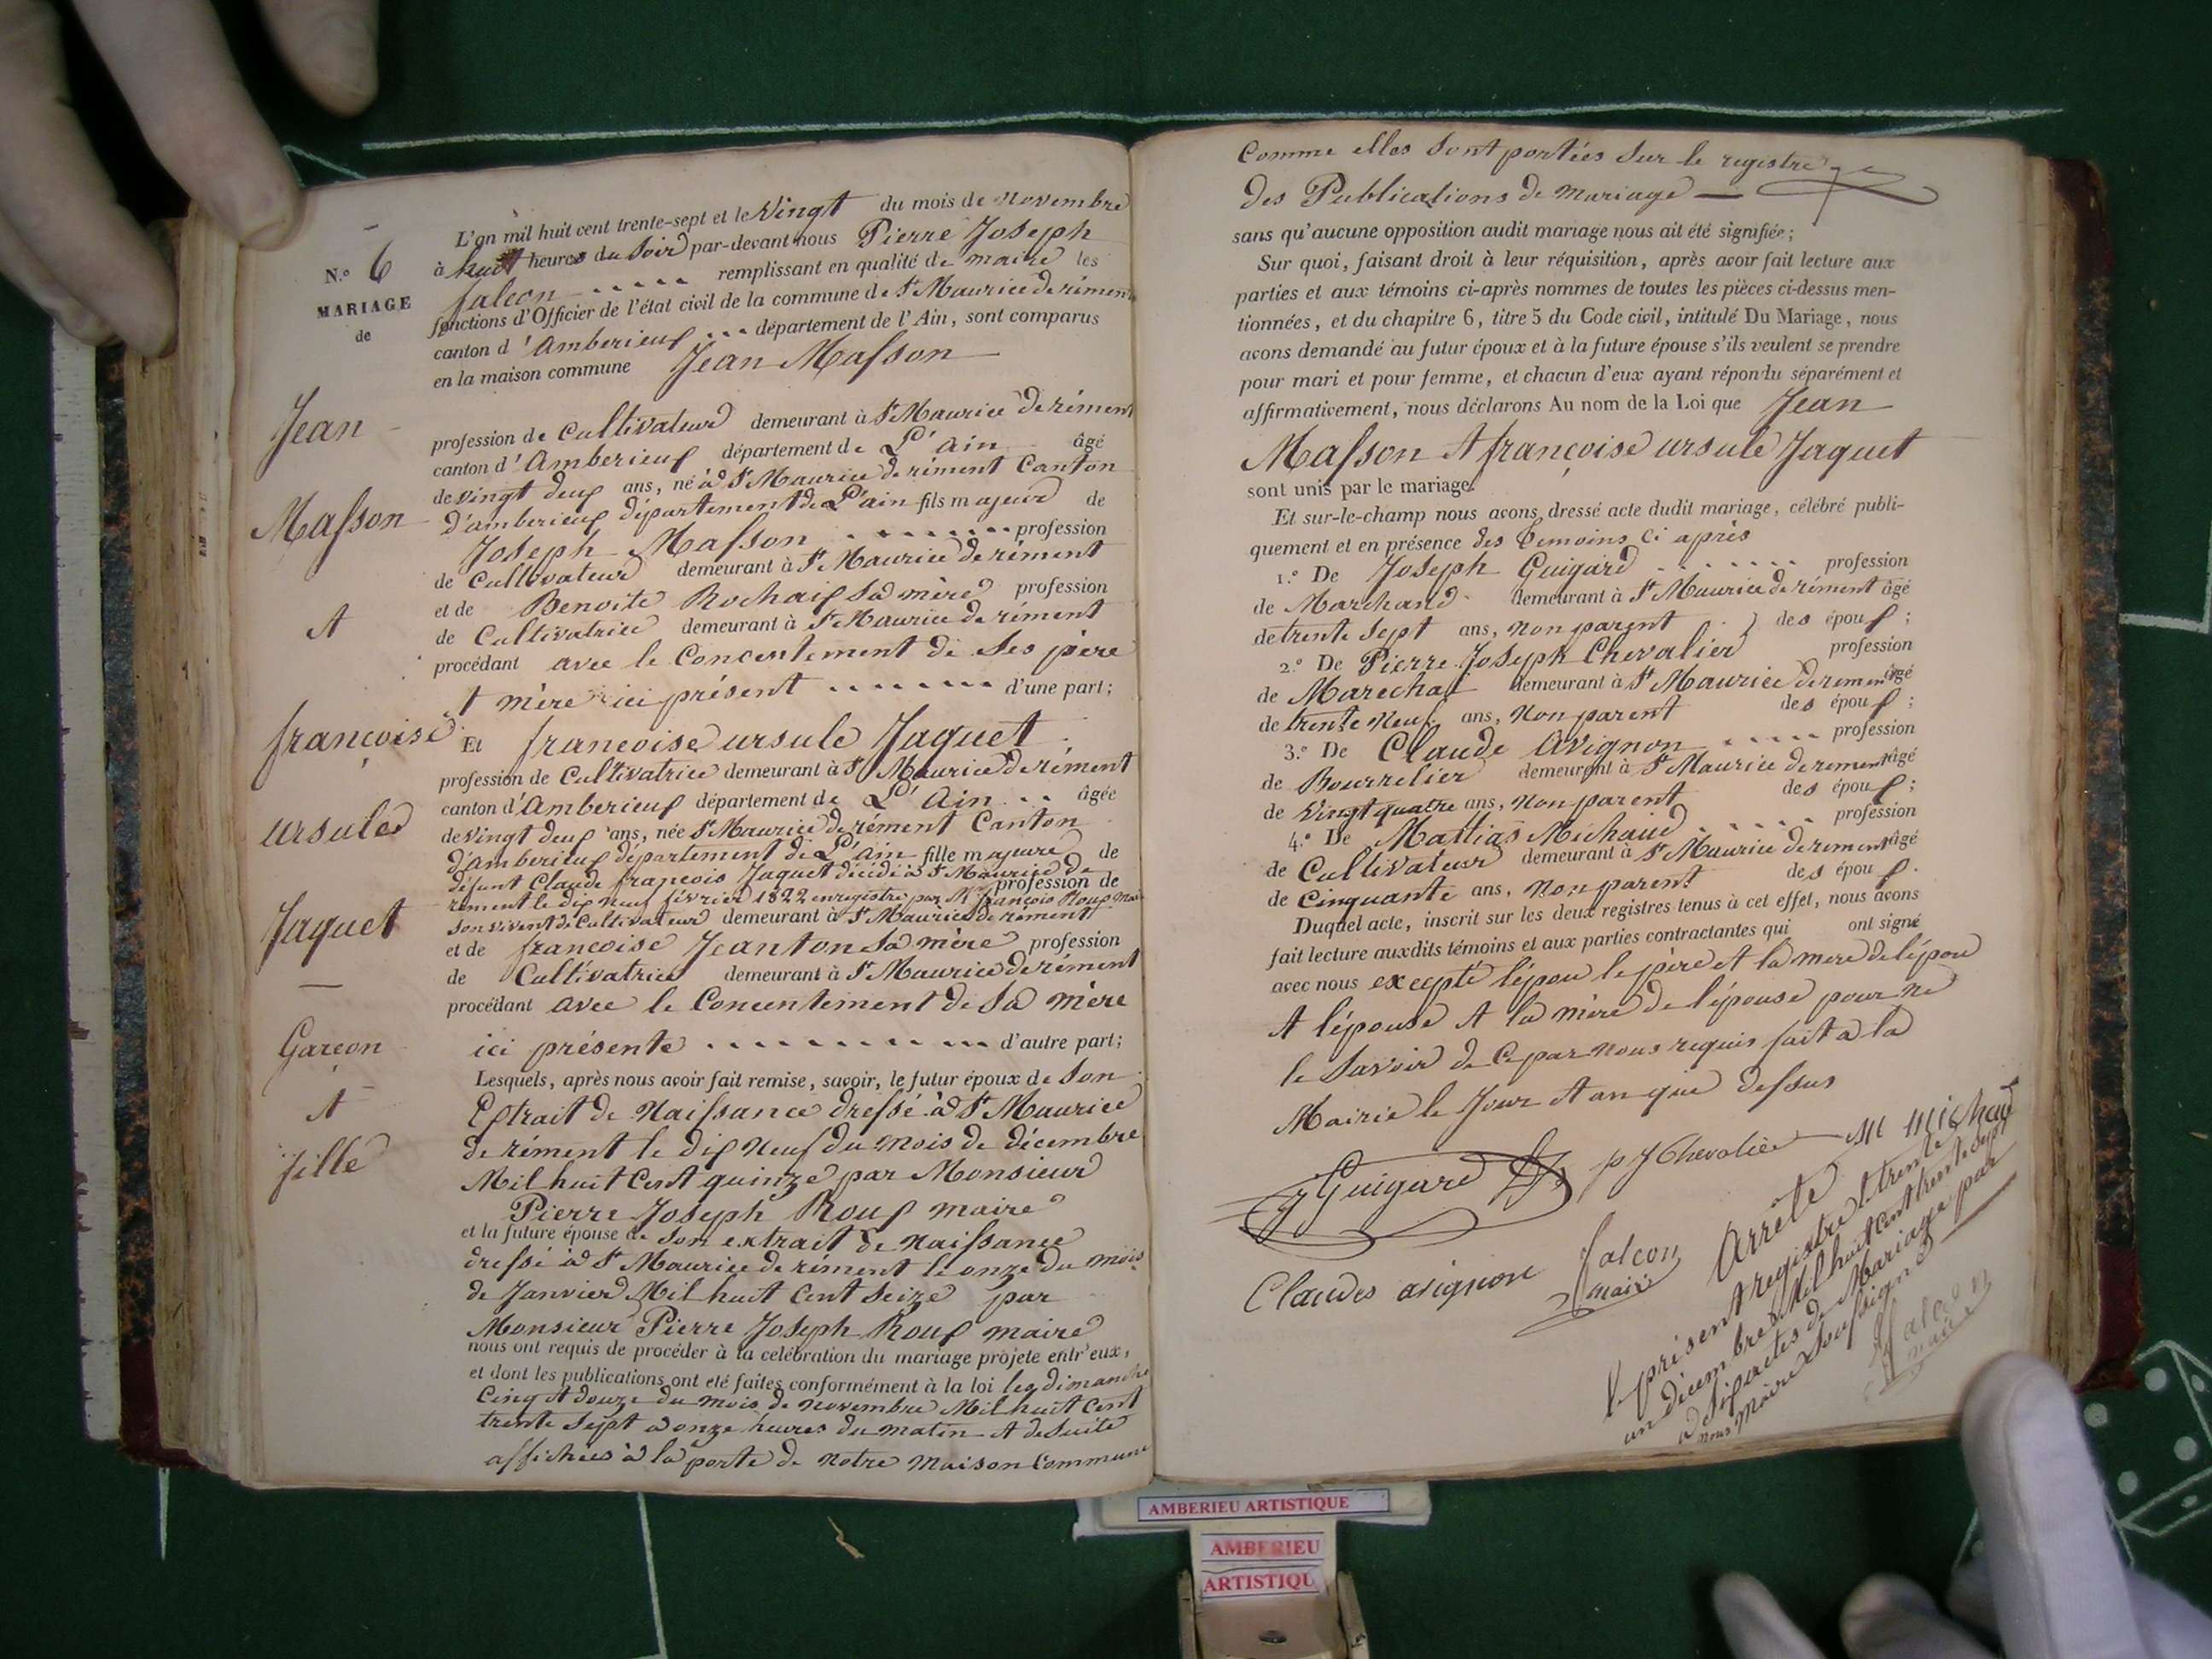 N.º 6
MARIAGE
de
Jean
Masson
et
françoise
ursule
Jaquet
Garçon
et
fille
L'an mil huit cent trente-sept et le Vingt du mois de Novembre
à huit heures du Soir par-devant nous Pierre Joseph
falcon remplissant en qualité de maire les
fonctions d'Officier de l'état civil de la commune de St Maurice de rément
canton d'Amberieux département de l'Ain, sont comparus
en la maison commune Jean Masson
profession de Cultivateur demeurant à St Maurice de rément
canton d'Amberieux département de L'Ain âgé
de vingt deux ans, né à St Maurice de rément Canton
d'amberieux département de L'ain fils majeur de
Joseph Masson profession
de Cultivateur demeurant à St Maurice de rément
et de Benoite Rochaix Sa mère profession
de Cultivatrice demeurant à St Maurice de rément
procédant avec le Concentement de Ses père
et mère ici présent d'une part;
Et francoise ursule Jaquet
profession de Cultivatrice demeurant à St Maurice de rément
canton d'Amberieux département de L'Ain âgée
de vingt deux ans, née St Maurice de rément Canton
d'amberieux département de L'Ain fille majeure de
défunt Claude françois Jaquet décédé à St Maurice de
rement le dix neuf février 1822 enregistré par Mr françois Roux Maire profession de
Son vivent de Cultivateur demeurant à St Maurice de rement
et de francoise Jeanton Sa mère profession
de Cultivatrice demeurant à St Maurice de rément
procédant avec le Concentement de Sa mère
ici présente d'autre part;
Lesquels, après nous avoir fait remise, savoir, le futur époux de Son
Extrait de Naissance dressé à St Maurice
de rément le dix Neuf du mois de décembre
Mil huit Cent quinze par Monsieur
Pierre Joseph Roux maire
et la future épouse de Son extrait de Naissance
dressé à St Maurice de rément le onze du mois
de Janvier Mil huit Cent Seize par
Monsieur Pierre Joseph Roux maire
nous ont requis de procéder à la celébration du mariage projeté entr'eux,
et dont les publications ont eté faites conformément à la loi les dimanche
Cinq et douze du mois de Novembre Mil huit Cent
trente Sept à onze heures du matin et de Suite
affichées à la porte de Notre Maison Commune
Comme elles Sont portées Sur le registre
des Publications de mariage
sans qu'aucune opposition audit mariage nous ait été signifiée;
Sur quoi, faisant droit à leur réquisition, après avoir fait lecture aux
parties et aux témoins ci-après nommes de toutes les pièces ci-dessus men-
tionnées, et du chapitre 6, titre 5 du Code civil, intitulé Du Mariage, nous
avons demandé au futur époux et à la future épouse s'ils veulent se prendre
pour mari et pour femme, et chacun d'eux ayant répondu séparément et
affirmativement, nous déclarons Au nom de la Loi que Jean
Masson et françoise ursule Jaquet
sont unis par le mariage.
Et sur-le-champ nous avons dressé acte dudit mariage, célébré publi-
quement et en présence des témoins Ci après
1.º De Joseph Guigard profession
de Marchand demeurant à St Maurice de rément âgé
de trente Sept ans, non parent des époux;
2.º De Pierre Joseph Chevalier profession
de Marechal demeurant à St Maurice de rement âgé
de trente Neuf ans, Non parent des époux;
3.º De Claude Avignon profession
de Bourrelier demeurant à St Maurice de rement âgé
de Vingt quatre ans, Non parent des époux;
4.º De Matlias Michaud profession
de Cultivateur demeurant à St Maurice de rement âgé
de Cinquante ans, Non parent des époux.
Duquel acte, inscrit sur les deux registres tenus à cet effet, nous avons
fait lecture auxdits témoins et aux parties contractantes qui ont signé
avec nous excepté l'épou le père et la mere de l'épou
et l'épouse et la mère de l'épouse pour ne
le Savoir de Ce par nous requis fait à la
Mairie le Jour et an que dessus
J Guigard
p J Chevalier
M michau
Claudes avignon
falcon
maire
Arrêté
le présent registre le trente
un décembre Mil huit Cent trente Sept
à Six actes de Mariage par
nous Maire Soussigné
falcon
maire
AMBERIEU ARTISTIQUE
AMBERIEU
ARTISTIQU